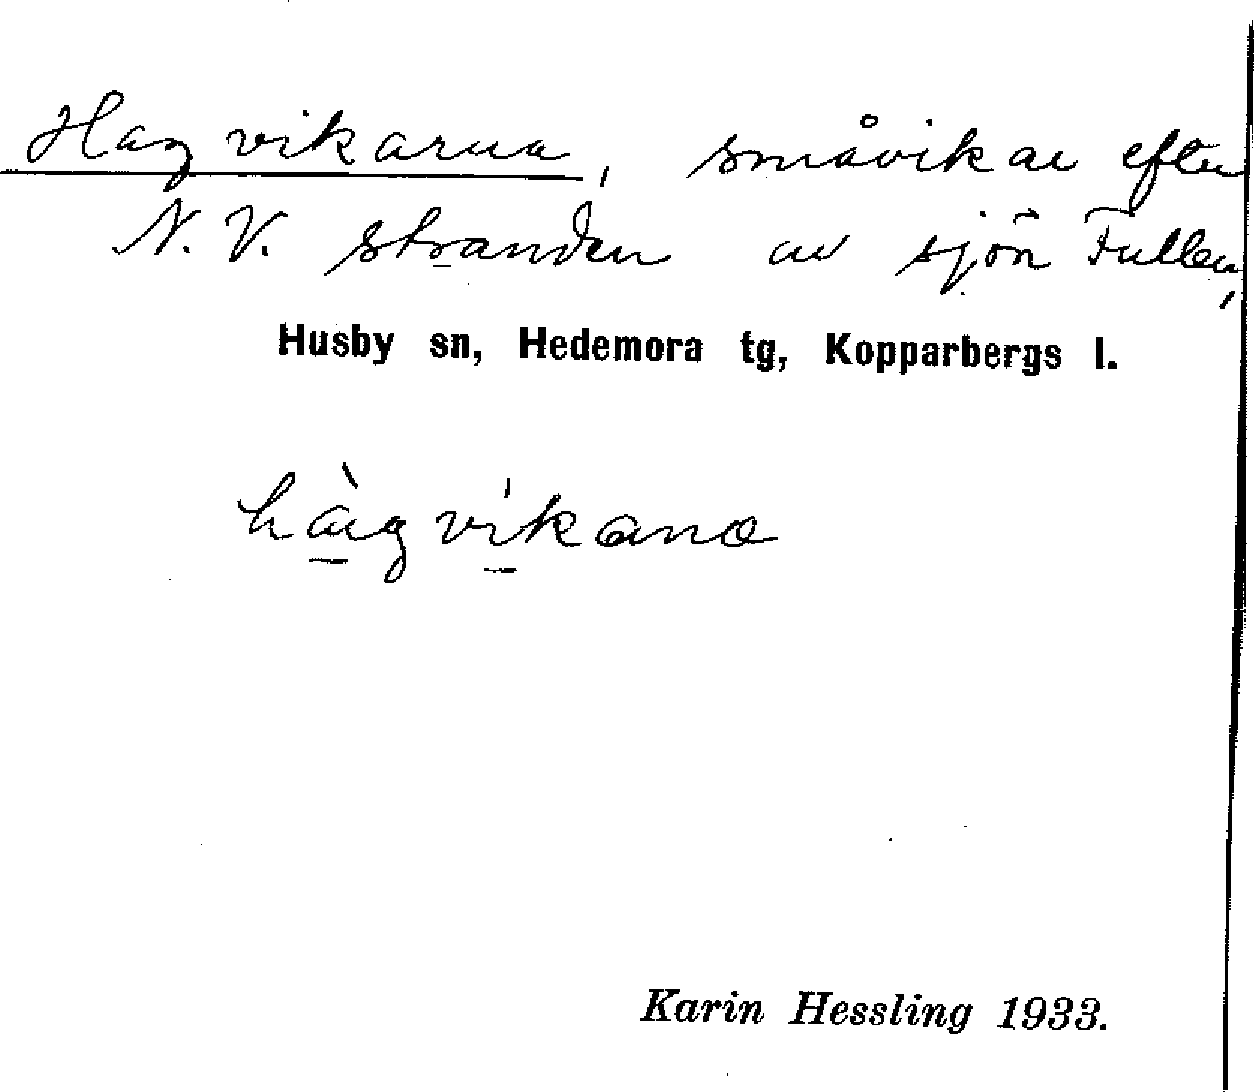 Hagvikarna, småvikar efter
N.V. stranden av sjön Fullen,
Husby sn, Hedemora tg, Kopparbergs l.
hàgvikana
Karin Hessling 1933.